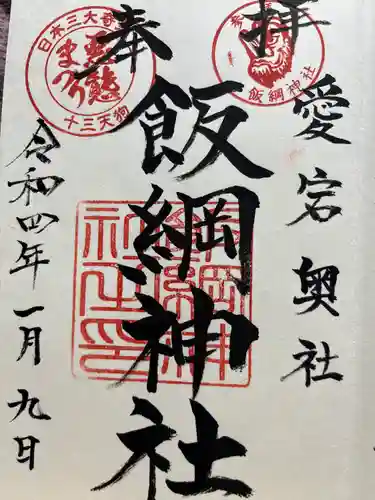 奉拝
愛宕奥社
飯綱神社
令和四年一月九日
日本三大奇
悪態
まつり
十三天狗
飯綱神社